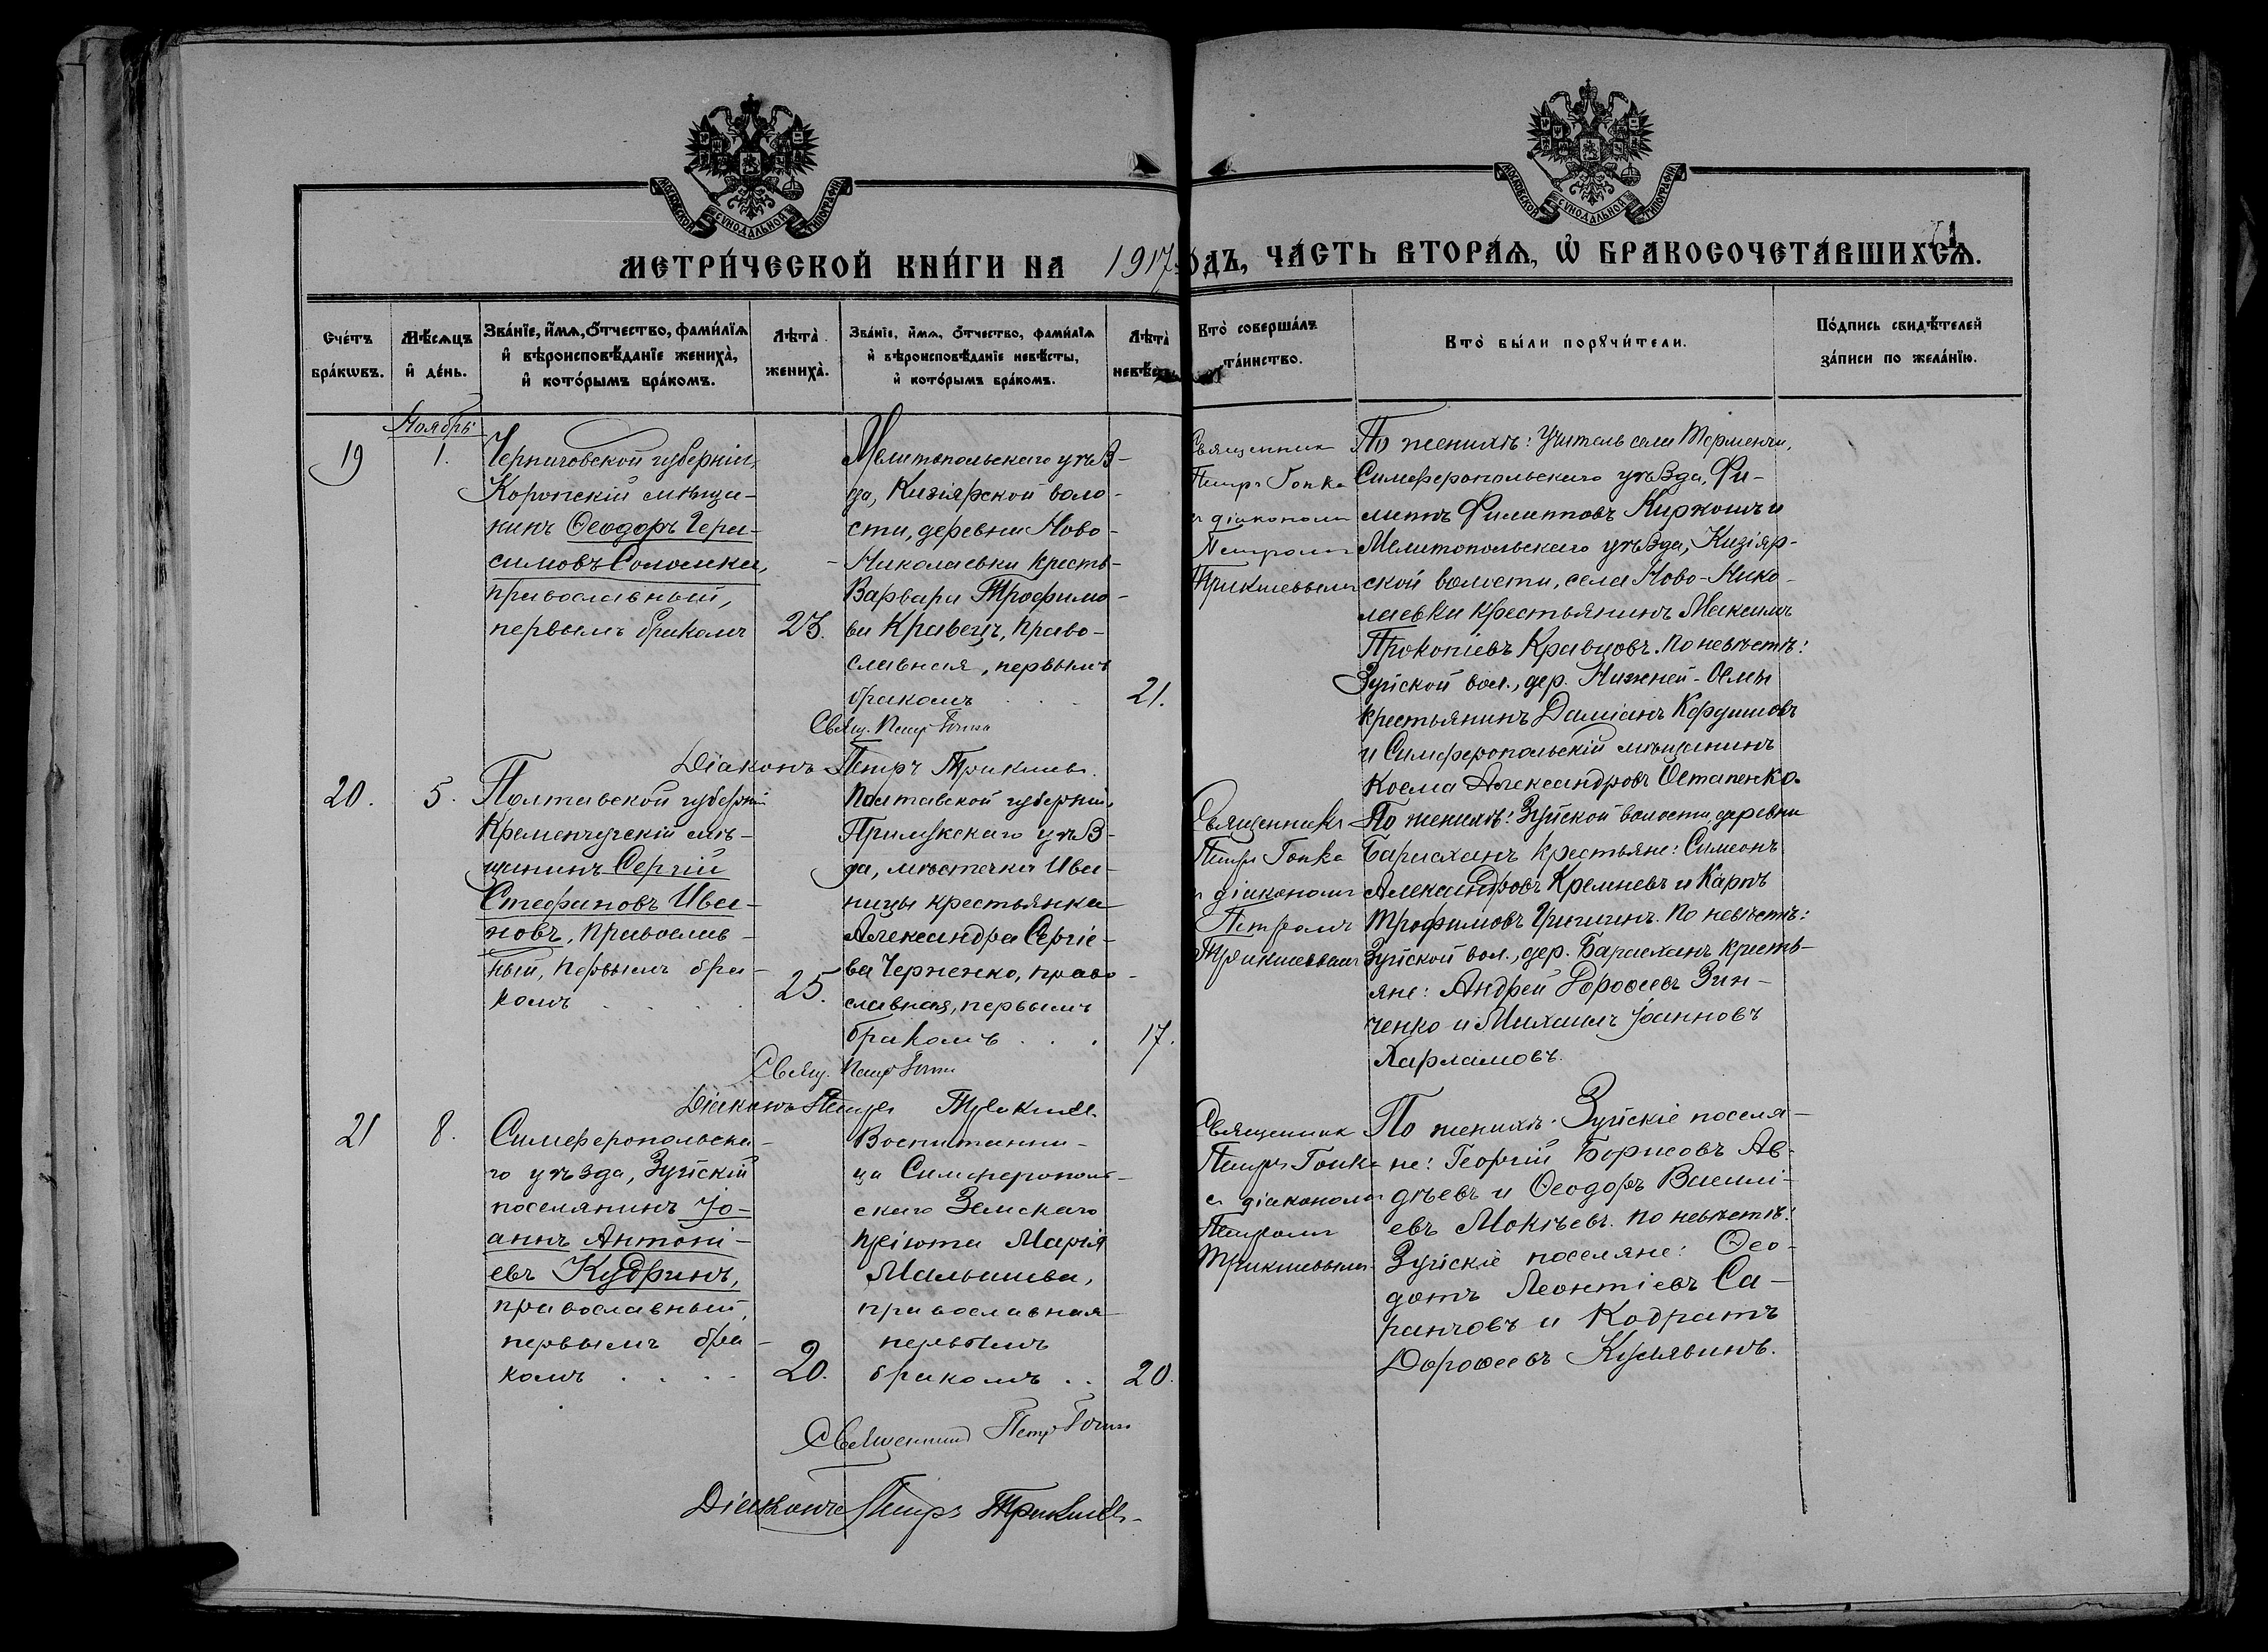 МОСКОВСКОЙ СѴНОДАЛЬНОЙ ТИПОГРАФІИ
МОСКОВСКОЙ СѴНОДАЛЬНОЙ ТИПОГРАФІИ
МЕТРИ́ЧЕСКОЙ КНИ́ГИ НА 1917
ОДЪ, ЧА́СТЬ ВТОРА́Ѧ, Ѽ БРАКОСОЧЕТА́ВШИХСѦ.
Сче́тъ
бра́кѡвъ.
Мѣ́сѧцъ
и҆ де́нь.
Зва́нїе, и҆́мѧ, ѻ҆́тчество, фами́лїѧ
и҆ вѣроисповѣ́данїе жениха̀,
и҆ кото́рымъ бра́комъ.
Лѣта̀
жениха̀.
Зва́нїе, и҆́мѧ, ѻ҆́тчество, фами́лїѧ
и҆ вѣроисповѣ́данїе невѣ́сты,
и҆ кото́рымъ бра́комъ.
Лѣта̀
невѣ́с
Кто̀ соверша́лъ
та́инство.
Кто̀ бы́ли порꙋчи́тели.
По́дпись свидѣ́телей
за́писи по жела́нїю.
Ноябрь
19
1.
Черниговской губерніи,
Коропскій мѣща-
нинъ Ѳеодоръ Гера-
симовъ Соломка,
православный,
первымъ бракомъ
23.
Мелитопольскаго уѣз-
да, Кизіярской воло-
сти, деревни Ново-
-Николаевки кресть-
Варвара Трофимо-
ва Кравецъ, право-
славная, первымъ
бракомъ
21.
Свящ. Петр Гопка
Діаконъ Петръ Трикашевъ.
Священник
Петръ Гопка
с діакономъ
Петромъ
По женихѣ: Учитель села Терменчи,
Симферопольскаго уѣзда, Фи-
липпъ Филипповъ Киркошъ и
Мелитопольскаго уѣзда, Кизіяр-
ской волости, села Ново-Нико-
лаевки крестьянинъ Максимъ
Прокопіевъ Кравцовъ. По невѣстѣ:
Зуйской вол., дер. Нижней-
крестьянинъ Даміанъ Кордишовъ
и Симферопольскій мѣщанинъ
Косма Александровъ Остапенко.
20.
5.
Полтавской губерніи
Кременчугскій мѣ-
щанинъ Сергій
Стефановъ Ива-
новъ, православ-
ный, первымъ бра-
комъ . . . .
25.
Полтавской губерніи,
Прилукскаго уѣз-
да, мѣстечка Ива-
ницы крестьянка
Александра Сергіе-
ва Черненко, право-
славная, первымъ
бракомъ . . .
17.
Свящ. Петр Гопка
Діаконъ Петръ
Священникъ
Петръ Гопка
с діакономъ
Петромъ
По женихѣ: Зуйской волости, деревни
Барасханъ крестьяне: Симеонъ
Александровъ Кремневъ и Карпъ
Трофимовъ Гричинъ. По невѣстѣ:
Зуйской вол., дер. Барасханъ кресть-
яне: Андрей Дороѳеевъ Зин-
ченко и Михаилъ Іоанновъ
Харламовъ.
21
8.
Симферопольска-
го уѣзда, Зуйскій
поселянинъ Іо-
аннъ Антоні-
евъ Кудринъ,
православный,
первымъ бра-
комъ . . . .
20.
Воспитанни-
ца Симферополь-
скаго Земскаго
пріюта Марія
Малышева,
православная
первымъ
бракомъ . .
20.
Священник Петръ Гопка
Діаконъ Петръ
Священник
Петръ Гопка
с діакономъ
Петромъ
По женихѣ: Зуйскіе поселя-
не: Георгій Борисовъ Ав-
дѣевъ и Ѳеодоръ Василі-
евъ Мокѣевъ. По невѣстѣ:
Зуйскіе поселяне: Ѳео-
дотъ Леонтіевъ Са-
ранчовъ и Кодратъ
Дороѳеевъ Курлявинъ.